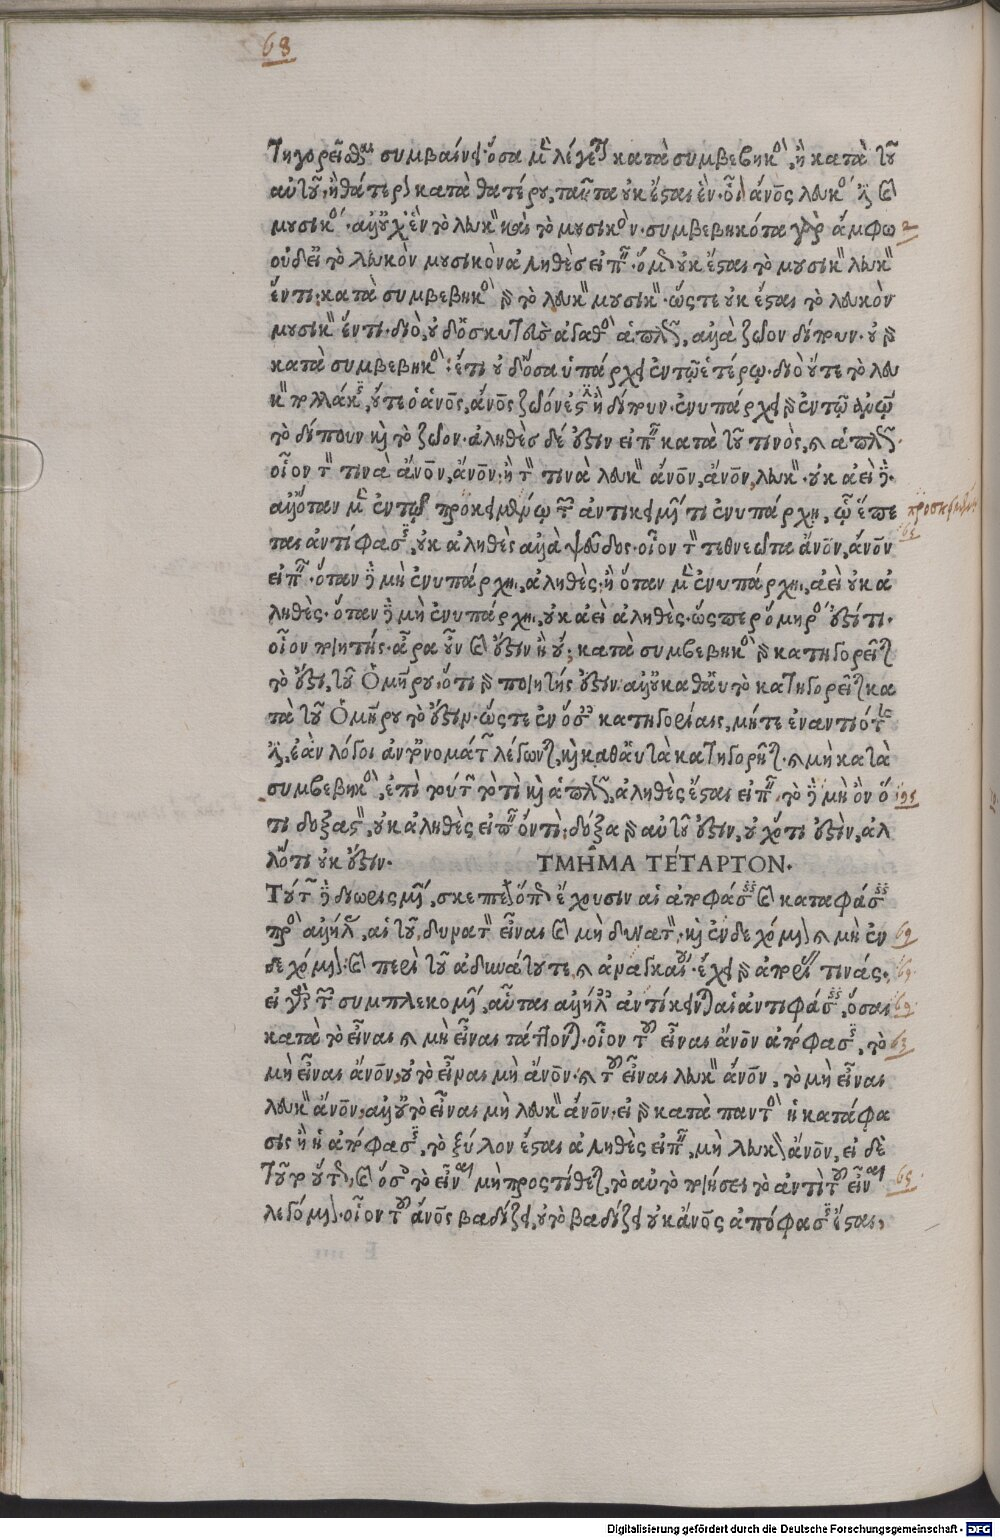 68
τηγορεῖσθαι συμβαίνει· ὅσα μὲν λέγεται κατὰ συμβεβηκὸς, ἢ κατὰ τοῦ
αὐτοῦ, ἢ θάτερον κατὰ θατέρου, ταῦτα οὐκ ἔσται ἕν· οἷον ἄνος λευκός ἐστι καὶ
μουσικός· ἀλλ' οὐχ ἓν τὸ λευκὸν καὶ τὸ μουσικὸν· συμβεβηκότα γὰρ ἄμφω
οὐδ' εἰ τὸ λευκὸν μουσικὸν ἀληθὲς εἰπεῖν· ὅμως οὐκ ἔσται τὸ μουσικὸν λευκὸν
ἕν τι· κατὰ συμβεβηκὸς γὰρ τὸ λευκὸν μουσικὸν· ὥστε οὐκ ἔσται τὸ λευκὸν
μουσικὸν ἕν τι· διὸ, οὐδ' ὁ σκυτεὺς ἀγαθὸς ἁπλῶς, ἀλλὰ ζῶον δίπουν· οὐ γὰρ
κατὰ συμβεβηκὸς· ἔτι οὐδ' ὅσα ὑπάρχει ἐν τῷ ἑτέρῳ· διὸ οὔτε τὸ λευ
κὸν πολλάκις, οὔτε ὁ ἄνος, ἄνος ζῶόν ἐστιν ἢ δίπουν· ἐνυπάρχει γὰρ ἐν τῷ ἀνῷ
τὸ δίπουν καὶ τὸ ζῶον· ἀληθὲς δέ ἐστιν εἰπεῖν κατὰ τοῦ τινὸς, καὶ ἁπλῶς·
οἷον τὸν τινὰ ἄνον, ἄνον· ἢ τὸν τινὰ λευκὸν ἄνον, ἄνον, λευκὸν· οὐκ ἀεὶ δὲ·
ἀλλ' ὅταν μὲν ἐν τῷ προκειμένῳ τῶν ἀντικειμένων τι ἐνυπάρχῃ, ᾧ ἕπε προσκειμένῳ
ται ἀντίφασις, οὐκ ἀληθὲς ἀλλὰ ψεῦδος· οἷον τὸν τεθνεῶτα ἄνον, ἄνον 65
εἰπεῖν· ὅταν δὲ μὴ ἐνυπάρχῃ, ἀληθὲς· ἢ ὅταν μὲν ἐνυπάρχῃ, ἀεὶ οὐκ ἀ
ληθὲς· ὅταν δὲ μὴ ἐνυπάρχῃ, οὐκ ἀεὶ ἀληθὲς· ὥσπερ ὅμηρός ἐστί τι·
οἷον ποιητής· ἆρα οὖν καὶ ἔστιν ἢ οὔ· κατὰ συμβεβηκὸς γὰρ κατηγορεῖται
τὸ ἔστι, τοῦ Ὁμήρου, ὅτι γὰρ ποιητής ἐστιν ἀλλ' οὐ καθ' αὑτὸ κατηγορεῖται κα
τὰ τοῦ Ὁμήρου τὸ ἔστιν· ὥστε ἐν ὅσαις κατηγορίαις, μήτε ἐναντιότης
ἐστιν, ἐὰν λόγοι ἀντ' ὀνομάτων λέγωνται, καὶ καθ' αὑτὰ κατηγορῆται· καὶ μὴ κατὰ
συμβεβηκὸς, ἐπὶ τούτων τὸ τὶ καὶ ἁπλῶς, ἀληθὲς ἔσται εἰπεῖν, τὸ δὲ μὴ ὂν ὅ
τι δοξαστὸν, οὐκ ἀληθὲς εἰπεῖν ὄν τὶ· δόξα γὰρ αὐτοῦ ἐστιν, οὐχ ὅτι ἐστὶν, ἀλ
λ' ὅτι οὐκ ἔστιν. ΤΜΗ͂ΜΑ ΤΕ΄ΤΑΡΤΟΝ.
Τούτων δὲ διωρισμένων, σκεπτέον ὅπως ἔχουσιν αἱ ἀποφάσεις καὶ καταφάσεις
πρὸς ἀλλήλας, αἱ τοῦ, δυνατὸν εἶναι καὶ μὴ δυνατὸν· καὶ ἐνδεχόμενον καὶ μὴ ἐν 69
δεχόμενον· καὶ περὶ τοῦ ἀδυνάτου τε καὶ ἀναγκαίου· ἔχει γὰρ ἀπορίας τινάς·
εἰ γὰρ τῶν συμπλεκομένων, αὗται ἀλλήλαις ἀντίκεινται αἱ ἀντιφάσεις, ὅσαι
κατὰ τὸ εἶναι καὶ μὴ εἶναι τάττονται· οἷον τοῦ εἶναι ἄνον ἀπόφασις, τὸ 63
μὴ εἶναι ἄνον, οὐ τὸ εἶναι μὴ ἄνον· καὶ τοῦ εἶναι λευκὸν ἄνον, τὸ μὴ εἶναι
λευκὸν ἄνον, ἀλλ' οὐ τὸ εἶναι μὴ λευκὸν ἄνον· εἰ γὰρ κατὰ παντὸς ἡ κατάφα
σις ἢ ἡ ἀπόφασις, τὸ ξύλον ἔσται ἀληθὲς εἰπεῖν, μὴ λευκὸν ἄνον, εἰ δὲ
τοῦτο οὕτως, καὶ ὅσοις τὸ εἶναι μὴ προστίθεται, τὸ αὐτὸ ποιήσει τὸ ἀντὶ τοῦ εἶναι 65
λεγόμενον· οἷον τοῦ ἄνος βαδίζει, οὐ τὸ βαδίζει οὐκ ἄνος ἀπόφασις ἔσται,
Digitalisierung gefördert durch die Deutsche Forschungsgemeinschaft - DFG